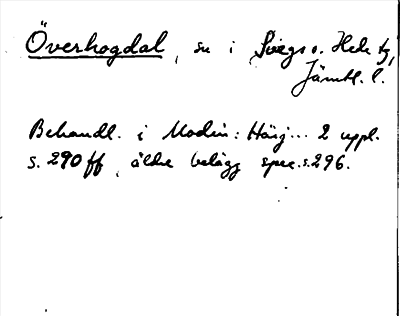 Överhogdal, sn i Svegs o. Hede tg,
Jämtl. l.
Behandl. i Modin: Härj... 2 uppl.
s. 290 ff, äldre belägg spec. s. 296.